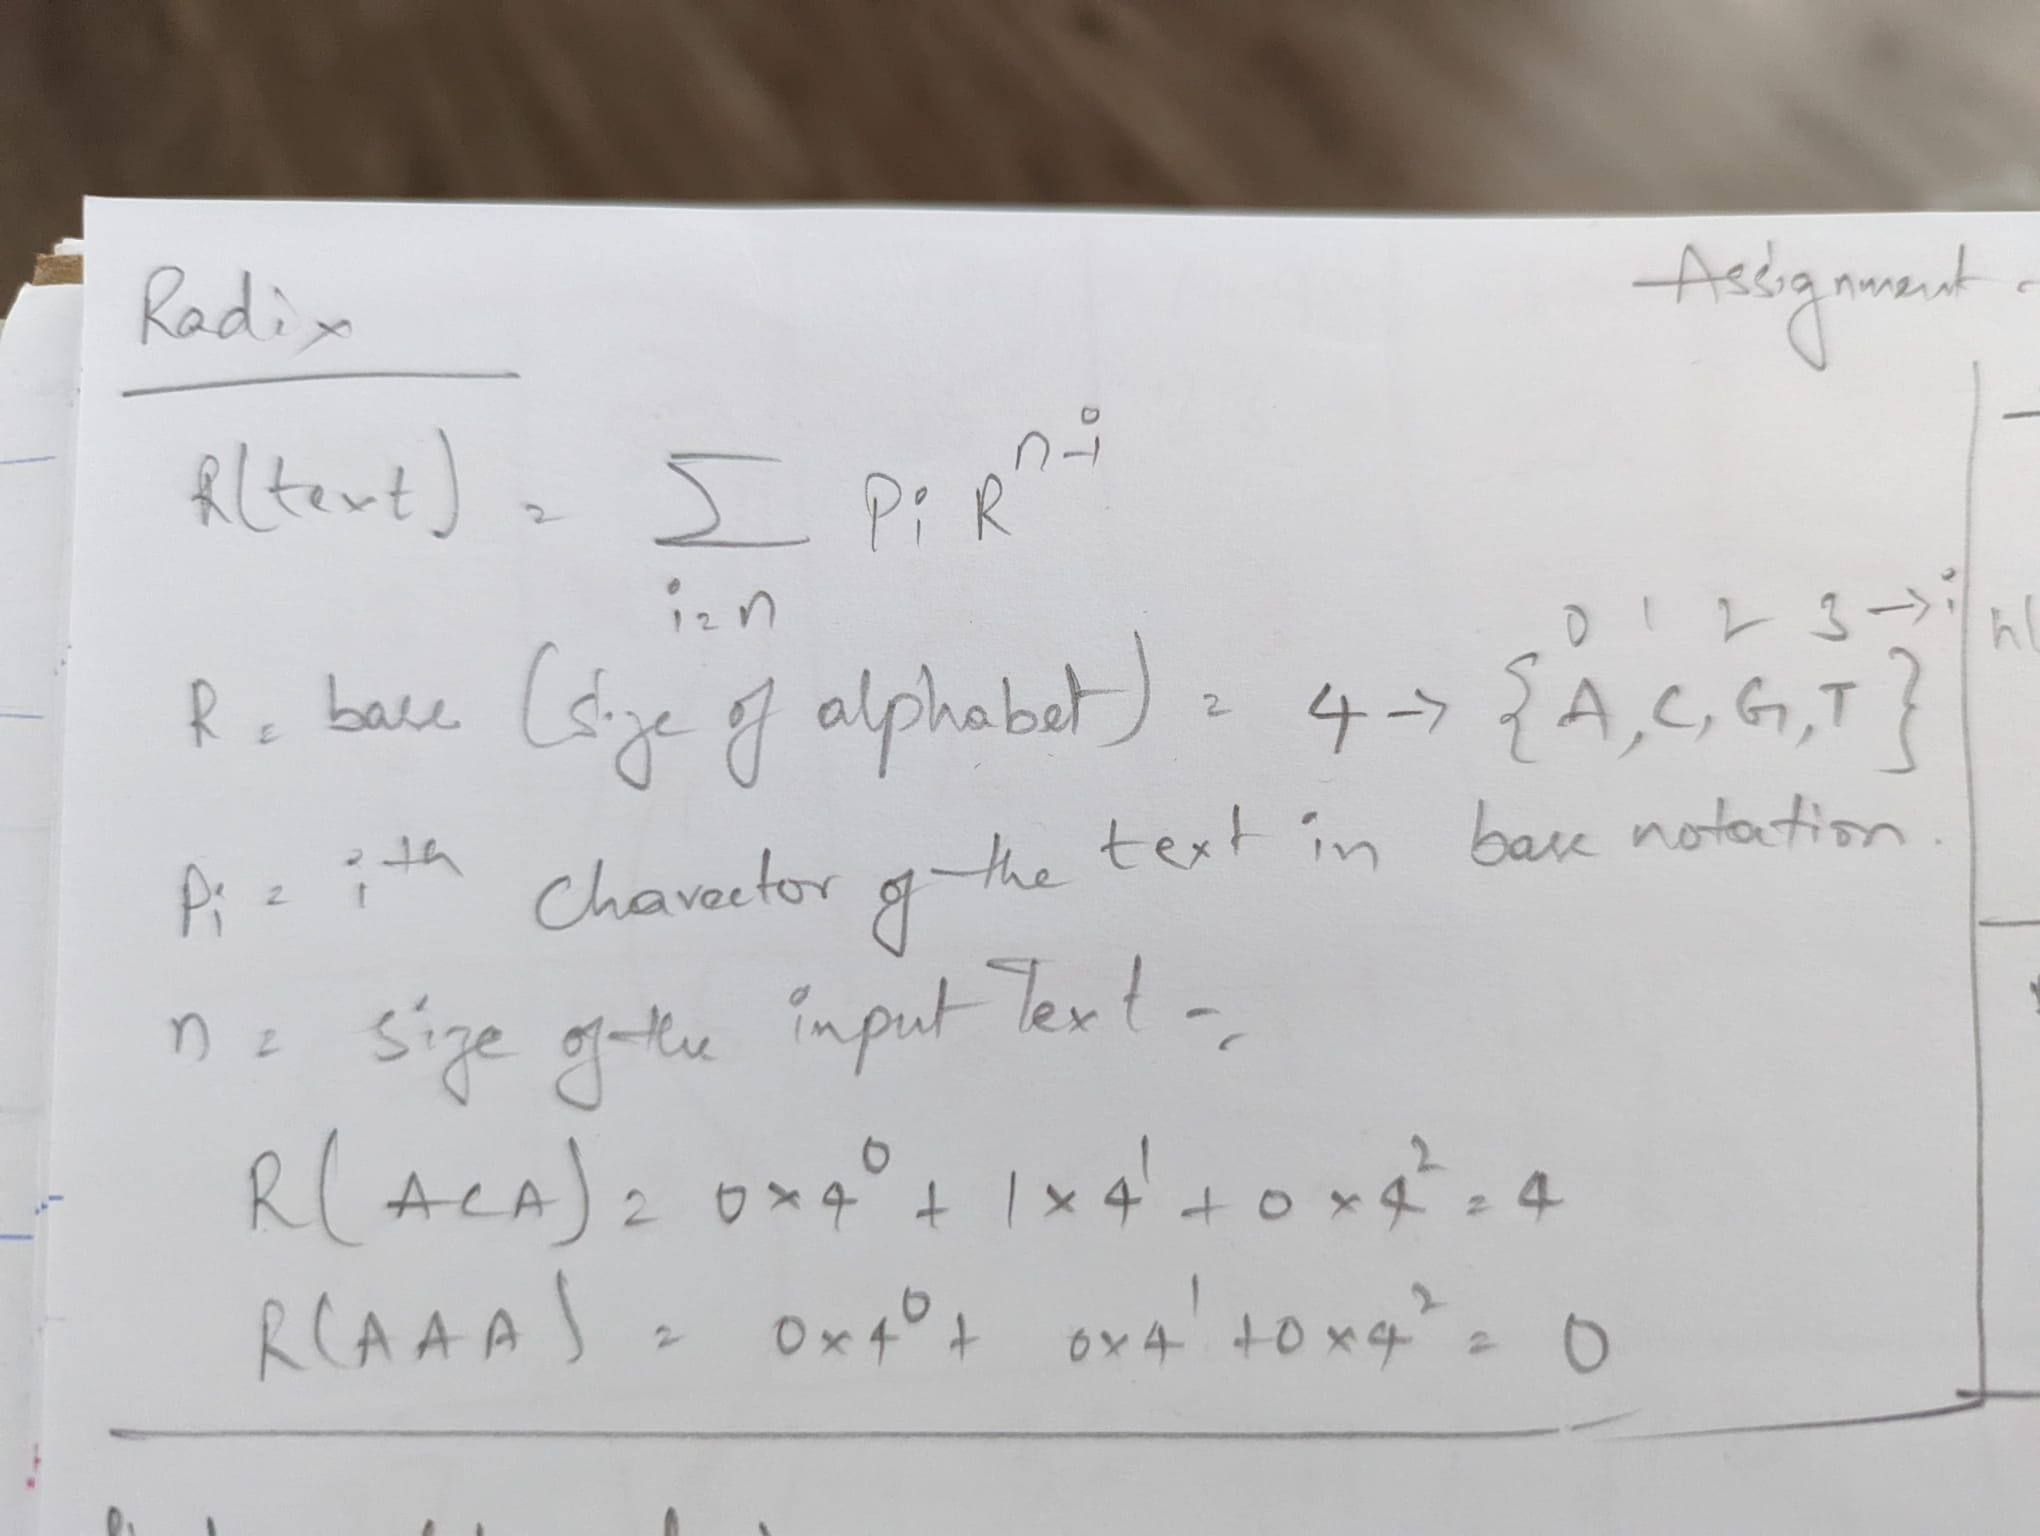 Radix
Assignment -
R(text) = Σ Pi R^n-i
i=n
0 1 2 3 → i
R = base (size of alphabet) = 4 → {A, C, G, T}
Pi = ith Charector of the text in base notation.
n = size of the input Text -
R(ACA) = 0×4^0 + 1×4^1 + 0×4^2 = 4
R(AAA) = 0×4^0 + 0×4^1 + 0×4^2 = 0